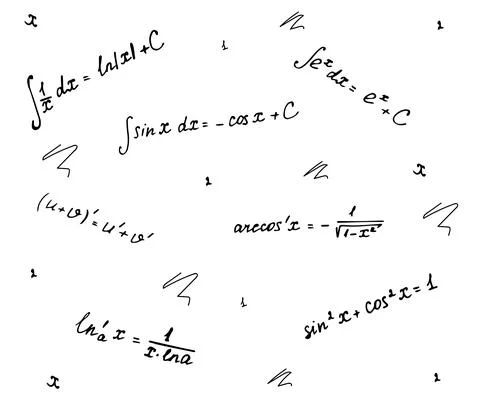 x
2
1
∫ 1/x dx = ln|x| + C
∫e^x dx = e^x + C
∫sin x dx = - cos x + C
2
x
(u+v)' = u' + v'
arccos'x = - 1/√(1-x²)
2
1
ln'ₐ x = 1/(x·lna)
sin² x + cos² x = 1
x
2